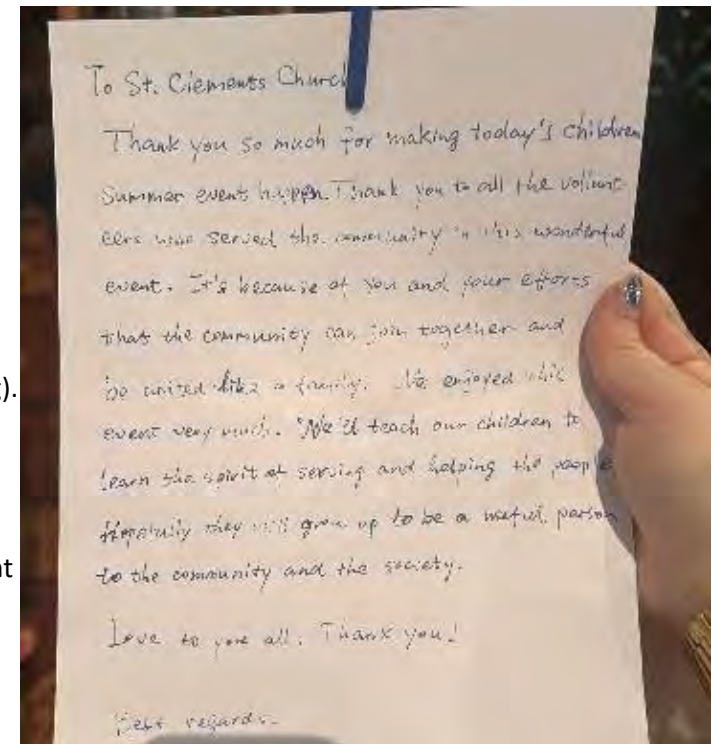 To St. Clements Church
Thank you so much for making today's children
summer event happen. Thank you to all the volunt
eers who served the community in this wonderful
event. It's because of you and your efforts
that the community can join together and
be united like a family. We enjoyed this
event very much. We'll teach our children to
learn the spirit of serving and helping the people
Hopefully they will grow up to be a useful person
to the community and the society.
Love to you all. Thank you!
Best regards.
).
t